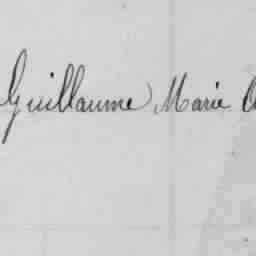 Guillaume Marie